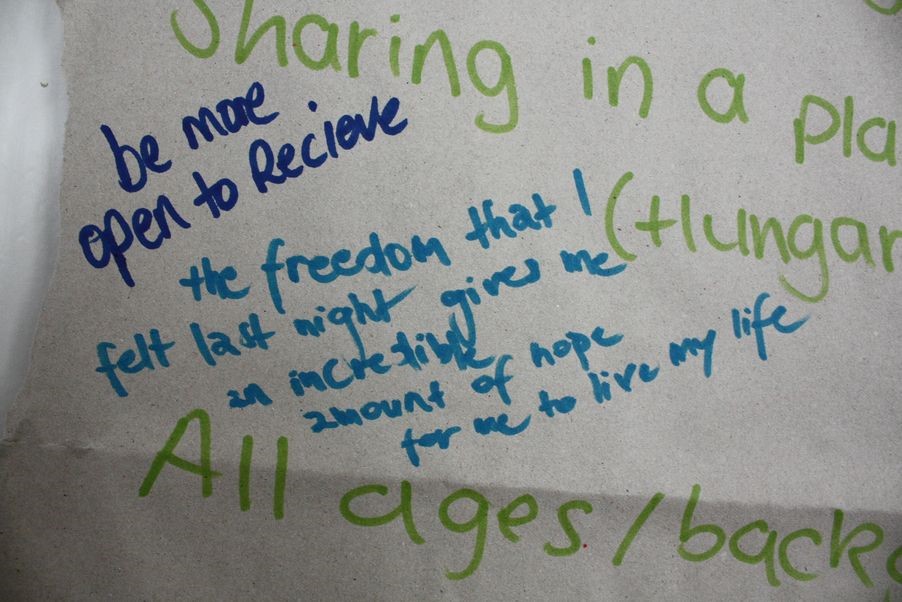 Sharing in a pla
be more
open to Recieve
(Hungar
the freedom that I
felt last night gives me
an incredible
amount of hope
for me to live my life
All ages/back